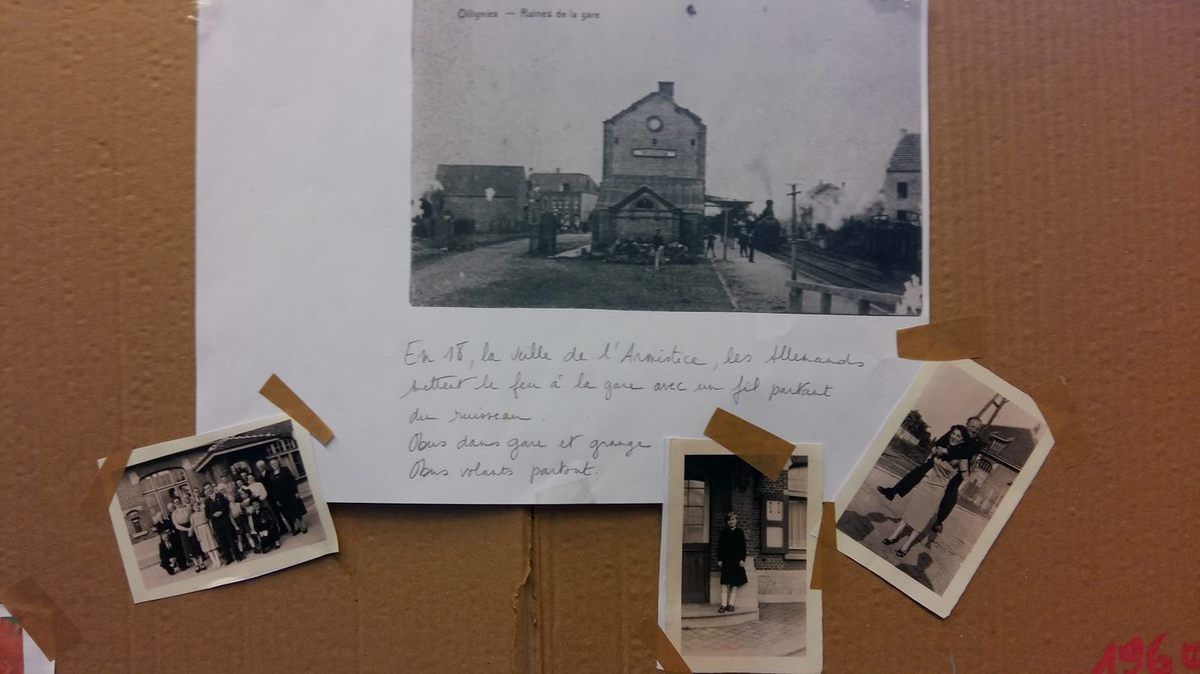 Ollignies — Ruines de la gare
En 18, la veille de l'Armistice, les Allemands
mettent le feu à la gare avec un fil partant
du ruisseau.
Obus dans gare et grange
Obus volants partout.
196